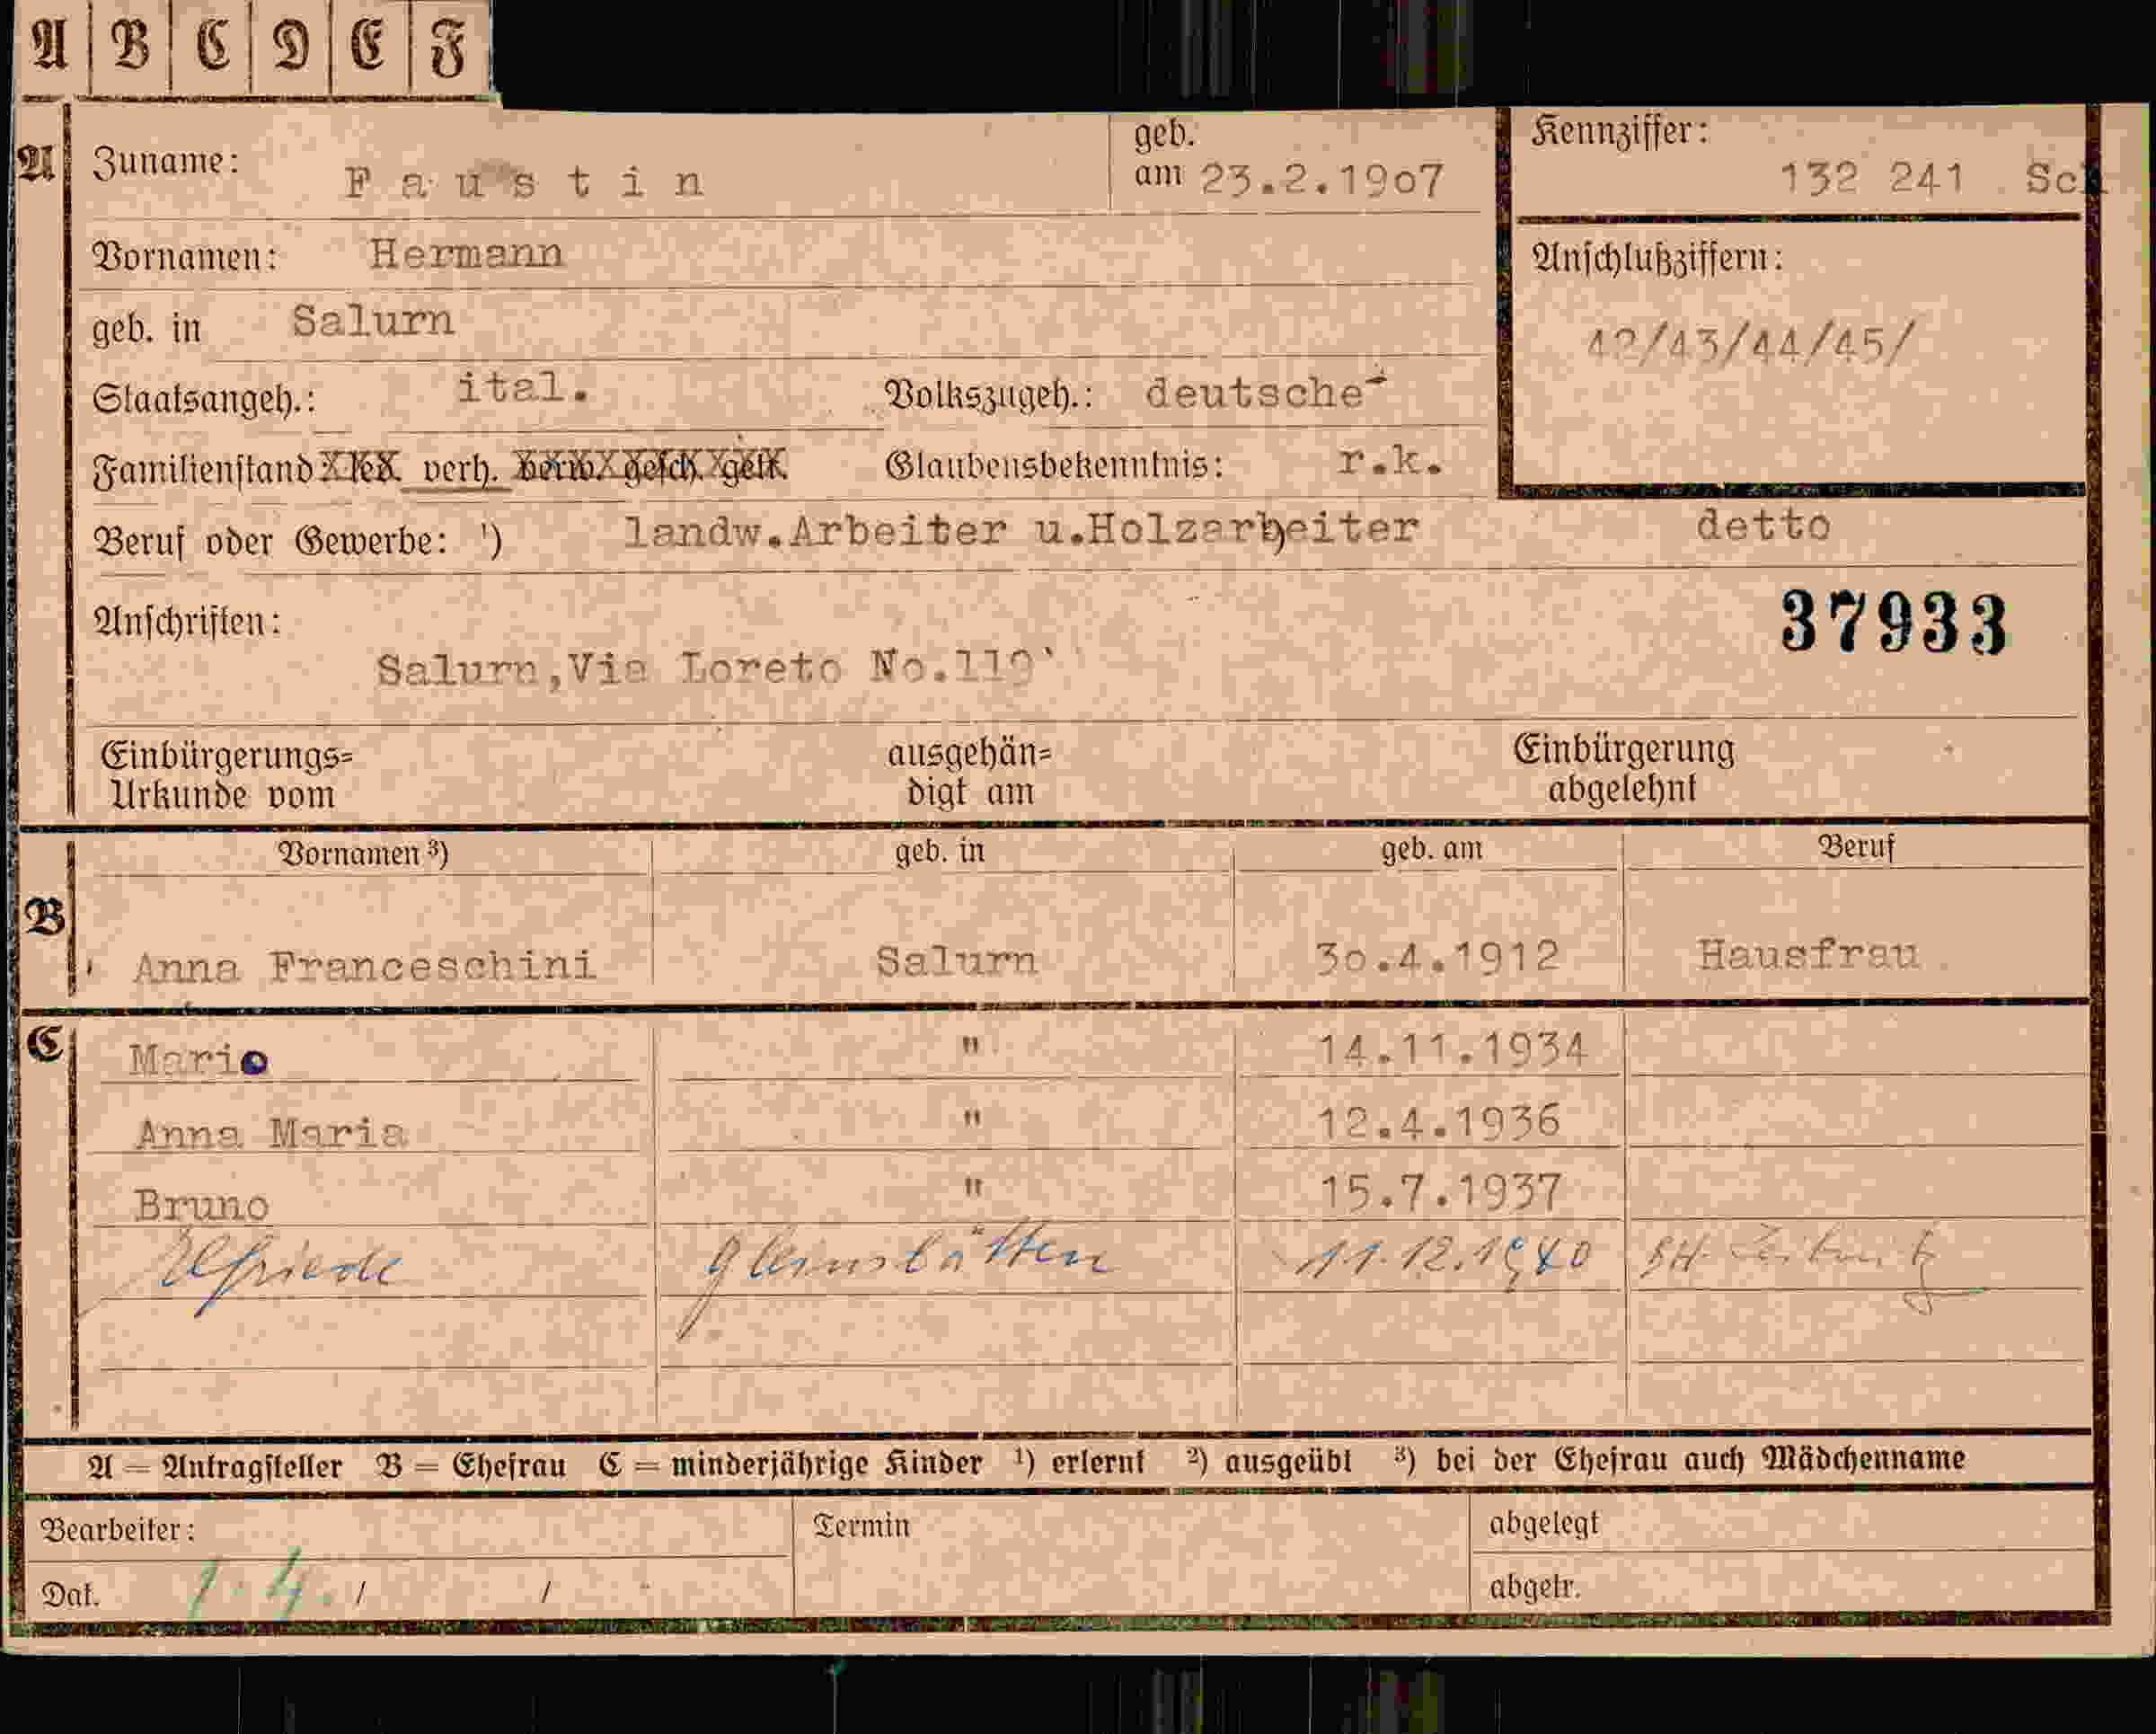 A B C D E F
A Zuname: Faustin geb. am 23.2.1907 Kennziffer: 132 241 Sch
Vornamen: Hermann Anschlußziffern:
geb. in Salurn 42/43/44/45/
Staatsangeh.: ital. Volkszugeh.: deutsche
Familienstand led. verh. verw. gesch. getr. Glaubensbekenntnis: r.k.
Beruf oder Gewerbe: ¹) landw.Arbeiter u.Holzarbeiter detto
Anschriften: 37933
Salurn,Via Loreto No.119
Einbürgerungs= ausgehän= Einbürgerung
Urkunde vom digt am abgelehnt
Vornamen ³) geb. in geb. am Beruf
B Anna Franceschini Salurn 30.4.1912 Hausfrau
C Mario " 14.11.1934
Anna Maria " 12.4.1936
Bruno " 15.7.1937
Elfriede Gleinstätten 11.12.1940
A = Antragsteller B = Ehefrau C = minderjährige Kinder ¹) erlernt ²) ausgeübt ³) bei der Ehefrau auch Mädchenname
Bearbeiter: Termin abgelegt
Dat. 1.4. / / abgetr.